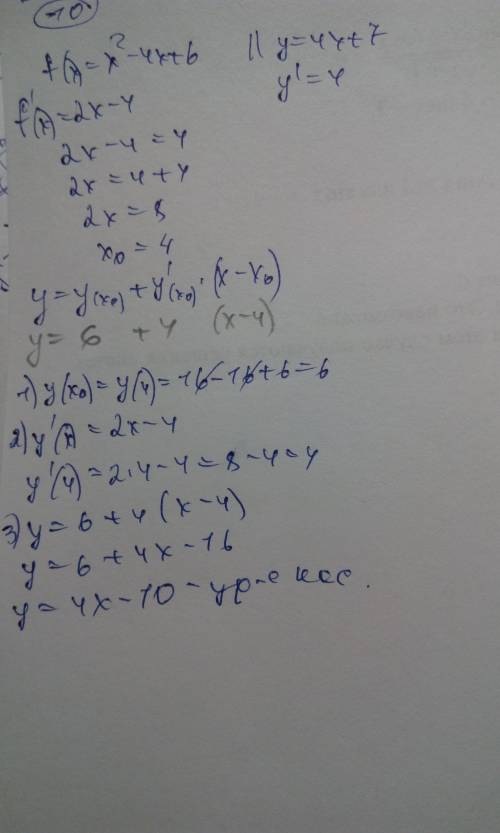 10
f(x)=x²-4x+6 || y=4x+7
f'(x)=2x-4 y'=4
2x-4=4
2x=4+4
2x=8
x₀=4
y=y(x₀)+y'(x₀)·(x-x₀)
y=6 +4 (x-4)
1) y(x₀)=y(4)=16-16+6=6
2) y'(x)=2x-4
y'(4)=2·4-4=8-4=4
3) y=6+4(x-4)
y=6+4x-16
y=4x-10-ур-е кас.